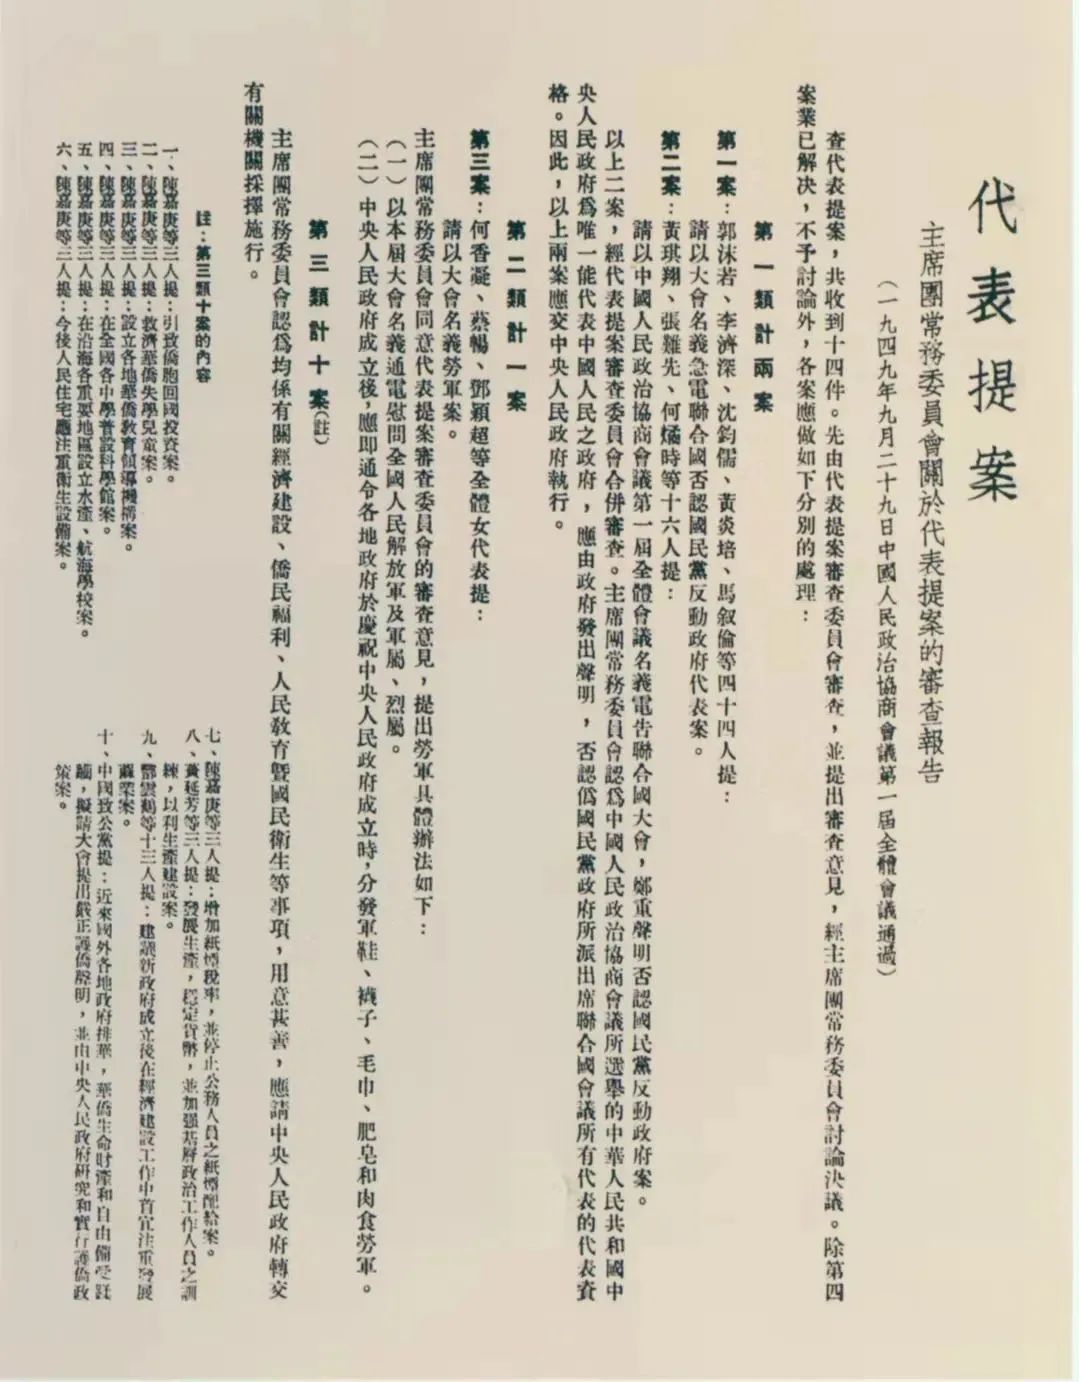 代表提案
主席團常務委員會關於代表提案的審查報告
（一九四九年九月二十九日中國人民政治協商會議第一屆全體會議通過）
查代表提案，共收到十四件。先由代表提案審查委員會審查，並提出審查意見，經主席團常務委員會討論決議。除第四
案業已解決，不予討論外，各案應做如下分別的處理：
第一類計兩案
第一案：郭沫若、李濟深、沈鈞儒、黃炎培、馬叙倫等四十四人提：
請以大會名義急電聯合國否認國民黨反動政府代表案。
第二案：黃琪翔、張難先、何燏時等十六人提：
請以中國人民政治協商會議第一屆全體會議名義電告聯合國大會，鄭重聲明否認國民黨反動政府案。
以上二案，經代表提案審查委員會合併審查。主席團常務委員會認爲中國人民政治協商會議所選舉的中華人民共和國中
央人民政府爲唯一能代表中國人民之政府，應由政府發出聲明，否認僞國民黨政府所派出席聯合國會議所有代表的代表資
格。因此，以上兩案應交中央人民政府執行。
第二類計一案
第三案：何香凝、蔡暢、鄧穎超等全體女代表提：
請以大會名義勞軍案。
主席團常務委員會同意代表提案審查委員會的審查意見，提出勞軍具體辦法如下：
（一）以本屆大會名義通電慰問全國人民解放軍及軍屬、烈屬。
（二）中央人民政府成立後，應即通令各地政府於慶祝中央人民政府成立時，分發軍鞋、襪子、毛巾、肥皂和肉食勞軍。
第三類計十案（註）
主席團常務委員會認爲均係有關經濟建設、僑民福利、人民敎育暨國民衛生等事項，用意甚善，應請中央人民政府轉交
有關機關採擇施行。
註：第三類十案的內容
一、陳嘉庚等三人提：引致僑胞回國投資案。
二、陳嘉庚等三人提：救濟華僑失學兒童案。
三、陳嘉庚等三人提：設立各地華僑敎育領導機構案。
四、陳嘉庚等三人提：在全國各中學普設科學館案。
五、陳嘉庚等三人提：在沿海各重要地區設立水產、航海學校案。
六、陳嘉庚等三人提：今後人民住宅應注重衛生設備案。
七、陳嘉庚等三人提：增加紙煙稅率，並停止公務人員之紙煙配給案。
八、黃延芳等三人提：發展生產，穩定貨幣，並加强基層政治工作人員之訓
練，以利生產建設案。
九、鄧雲鶴等十三人提：建議新政府成立後在經濟建設工作中首宜注重發展
蠶業案。
十、中國致公黨提：近來國外各地政府排華，華僑生命財產和自由備受
，擬請大會提出嚴正護僑聲明，並由中央人民政府研究和實行護僑政
策案。